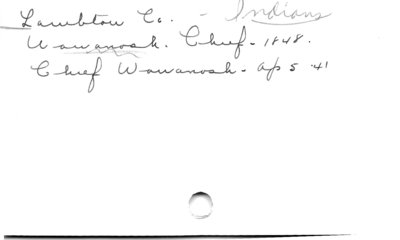 Lambton Co. - Indians
Wawanosh. Chief - 1848.
Chief Wawanosh - Ap 5 '41